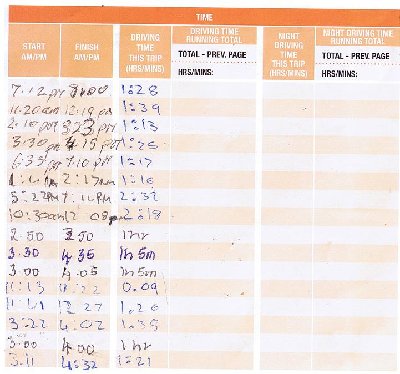 TIME
START AM/PM FINISH AM/PM DRIVING TIME THIS TRIP (HRS/MINS) DRIVING TIME RUNNING TOTAL NIGHT DRIVING TIME THIS TRIP (HRS/MINS) NIGHT DRIVING TIME RUNNING TOTAL
TOTAL - PREV. PAGE TOTAL - PREV. PAGE
HRS/MINS: HRS/MINS:
7.12 pm 1:28
11.20am 12.19 pm 1:39
2.10 pm 323 PM 1:13
3.30 pm 4.15 PM
6.33 pm 7.10 pm 1:17
2:17 1:16
5:22PM 2:32
10:30am 12 2:18
2.50 3.50 1 hr
3.30 4.35 1h 5m
3.00 4.05 1h 5m
11:13 11:22 0.09
12 27 1.26
3:22 4:02 1:35
3:00 4:00 1 hr
3.11 4:32 1:21